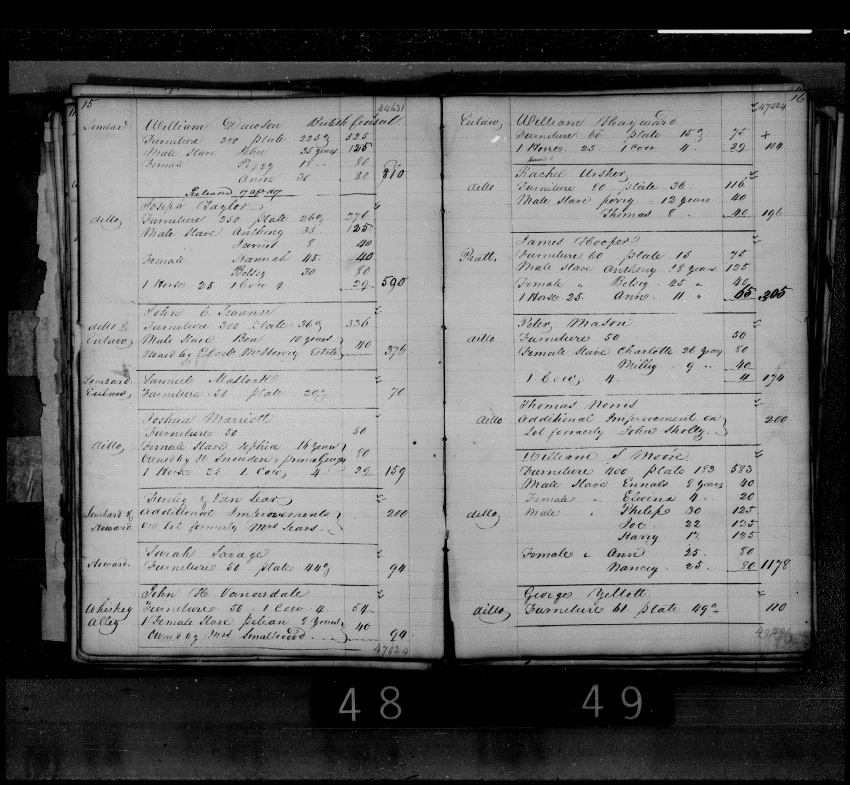 15
44631
Lombard William Dawson British Consul
Furniture 300 plate 225 oz 525
Male Slave John 35 years 125
Female Peggy 18 " 80
Anne 30 80 810
Released 17 Apr 1817
Joseph Taylor
ditto Furniture 250 plate 26 oz 276
Male Slave Anthony 35 125
James 8 40
Female Hannah 45 40
Betsey 30 80
1 Horse 25 1 Cow 4 29 590
John C Swann
ditto & Furniture 300 plate 36 oz 336
Eutaw Male Slave Ben 10 years
Owned by McHenry Estate 40 376
Lombard Samuel Matlock
Eutaw Furniture 50 plate 20 oz 70
Joshua Marriott
Furniture 50 50
ditto Female Slave Sophia 16 Years
Owned by W. Snowden, prince Georges 80
1 Horse 25 1 Cow 4 29 159
Finley & Van Lear
Lombard & Additional Improvements
Howard on lot formerly Mrs Sears 200
Sarah Savage
Howard Furniture 50 plate 44 oz 94
John H Vanorsdale
Whiskey Furniture 50 1 Cow 4 54
Alley 1 Female Slave 9 Years
Owned by Mrs Smallwood 40 94
47024
16
47024
Eutaw William Hayward
Furniture 60 plate 15 oz 75 +
1 Horse 25 1 Cow 4 29 104
Rachel Ussher
ditto Furniture 80 plate 36 116
Male Slave perry 12 years 40
Thomas 8 40 196
James Hooper
Pratt Furniture 60 plate 15 75
Male Slave Anthony 28 years 125
Female " Betsey 45 " 40
1 Horse 25 Ann 11 " 65 305
Peter Mason
ditto Furniture 50 50
Female Slave Charlotte 26 years 80
Milley 9 " 40
1 Cow 4 4 174
Thomas Norris
ditto Additional Improvement on
Lot formerly John Sholtz 200
William S Moore
Furniture 400 plate 183 583
Male Slave Ennals 8 years 40
Female " Elvina 4 20
ditto Male " Philip 30 125
Joe 22 125
Harry 17 125
Female " Ann 25 80
Nancey 25 80 1178
George Yellott
ditto Furniture 61 plate 49 oz 110
48
49